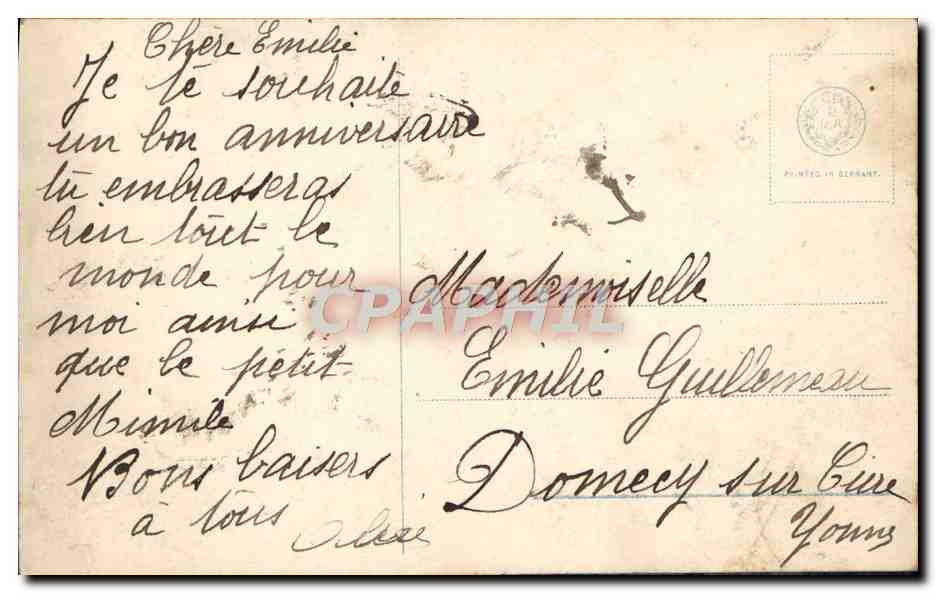 Chère Emilie
Je te souhaite
un bon anniversaire
tu embrasseras
bien tout le
monde pour
moi ainsi
que le petit
Mimile
Bons baisers
à tous
PRINTED IN GERMANY.
Mademoiselle
Emilie Guillemeau
Domecy sur Cure
Yonne
CPAPHIL